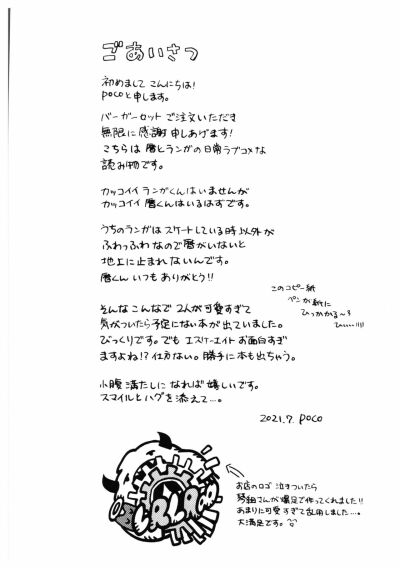 ごあいさつ
初めまして こんにちは!
pocoと申します。
バーガーセットご注文いただき
無限に感謝申しあげます!
こちらは 暦とランガの日常ラブコメな
読み物です。
カッコイイ ランガくんはいませんが
カッコイイ 暦くんはいるはずです。
うちのランガは スケートしている時以外が
ふわっふわ なので暦がいないと
地上に止まれないんです。
暦くん いつもありがとう!!
このコピー紙
ペンが紙に
ひっかかる~ぅ
ひぃぃ!!!
そんな こんなで 2人が可愛すぎて
気がついたら予定にない本が出ていました。
びっくりです。でも エスケーエイト お面白すぎ
ますよね!? 仕方ない。勝手に本も出ちゃう。
小腹 満たしに なれば 嬉しいです。
スマイルとハグを添えて…。
2021.7 poco
お店のロゴ 泣きついたら
組さんが爆速で作ってくれました!!
あまりに可愛すぎて乱用しました…。
大満足です。